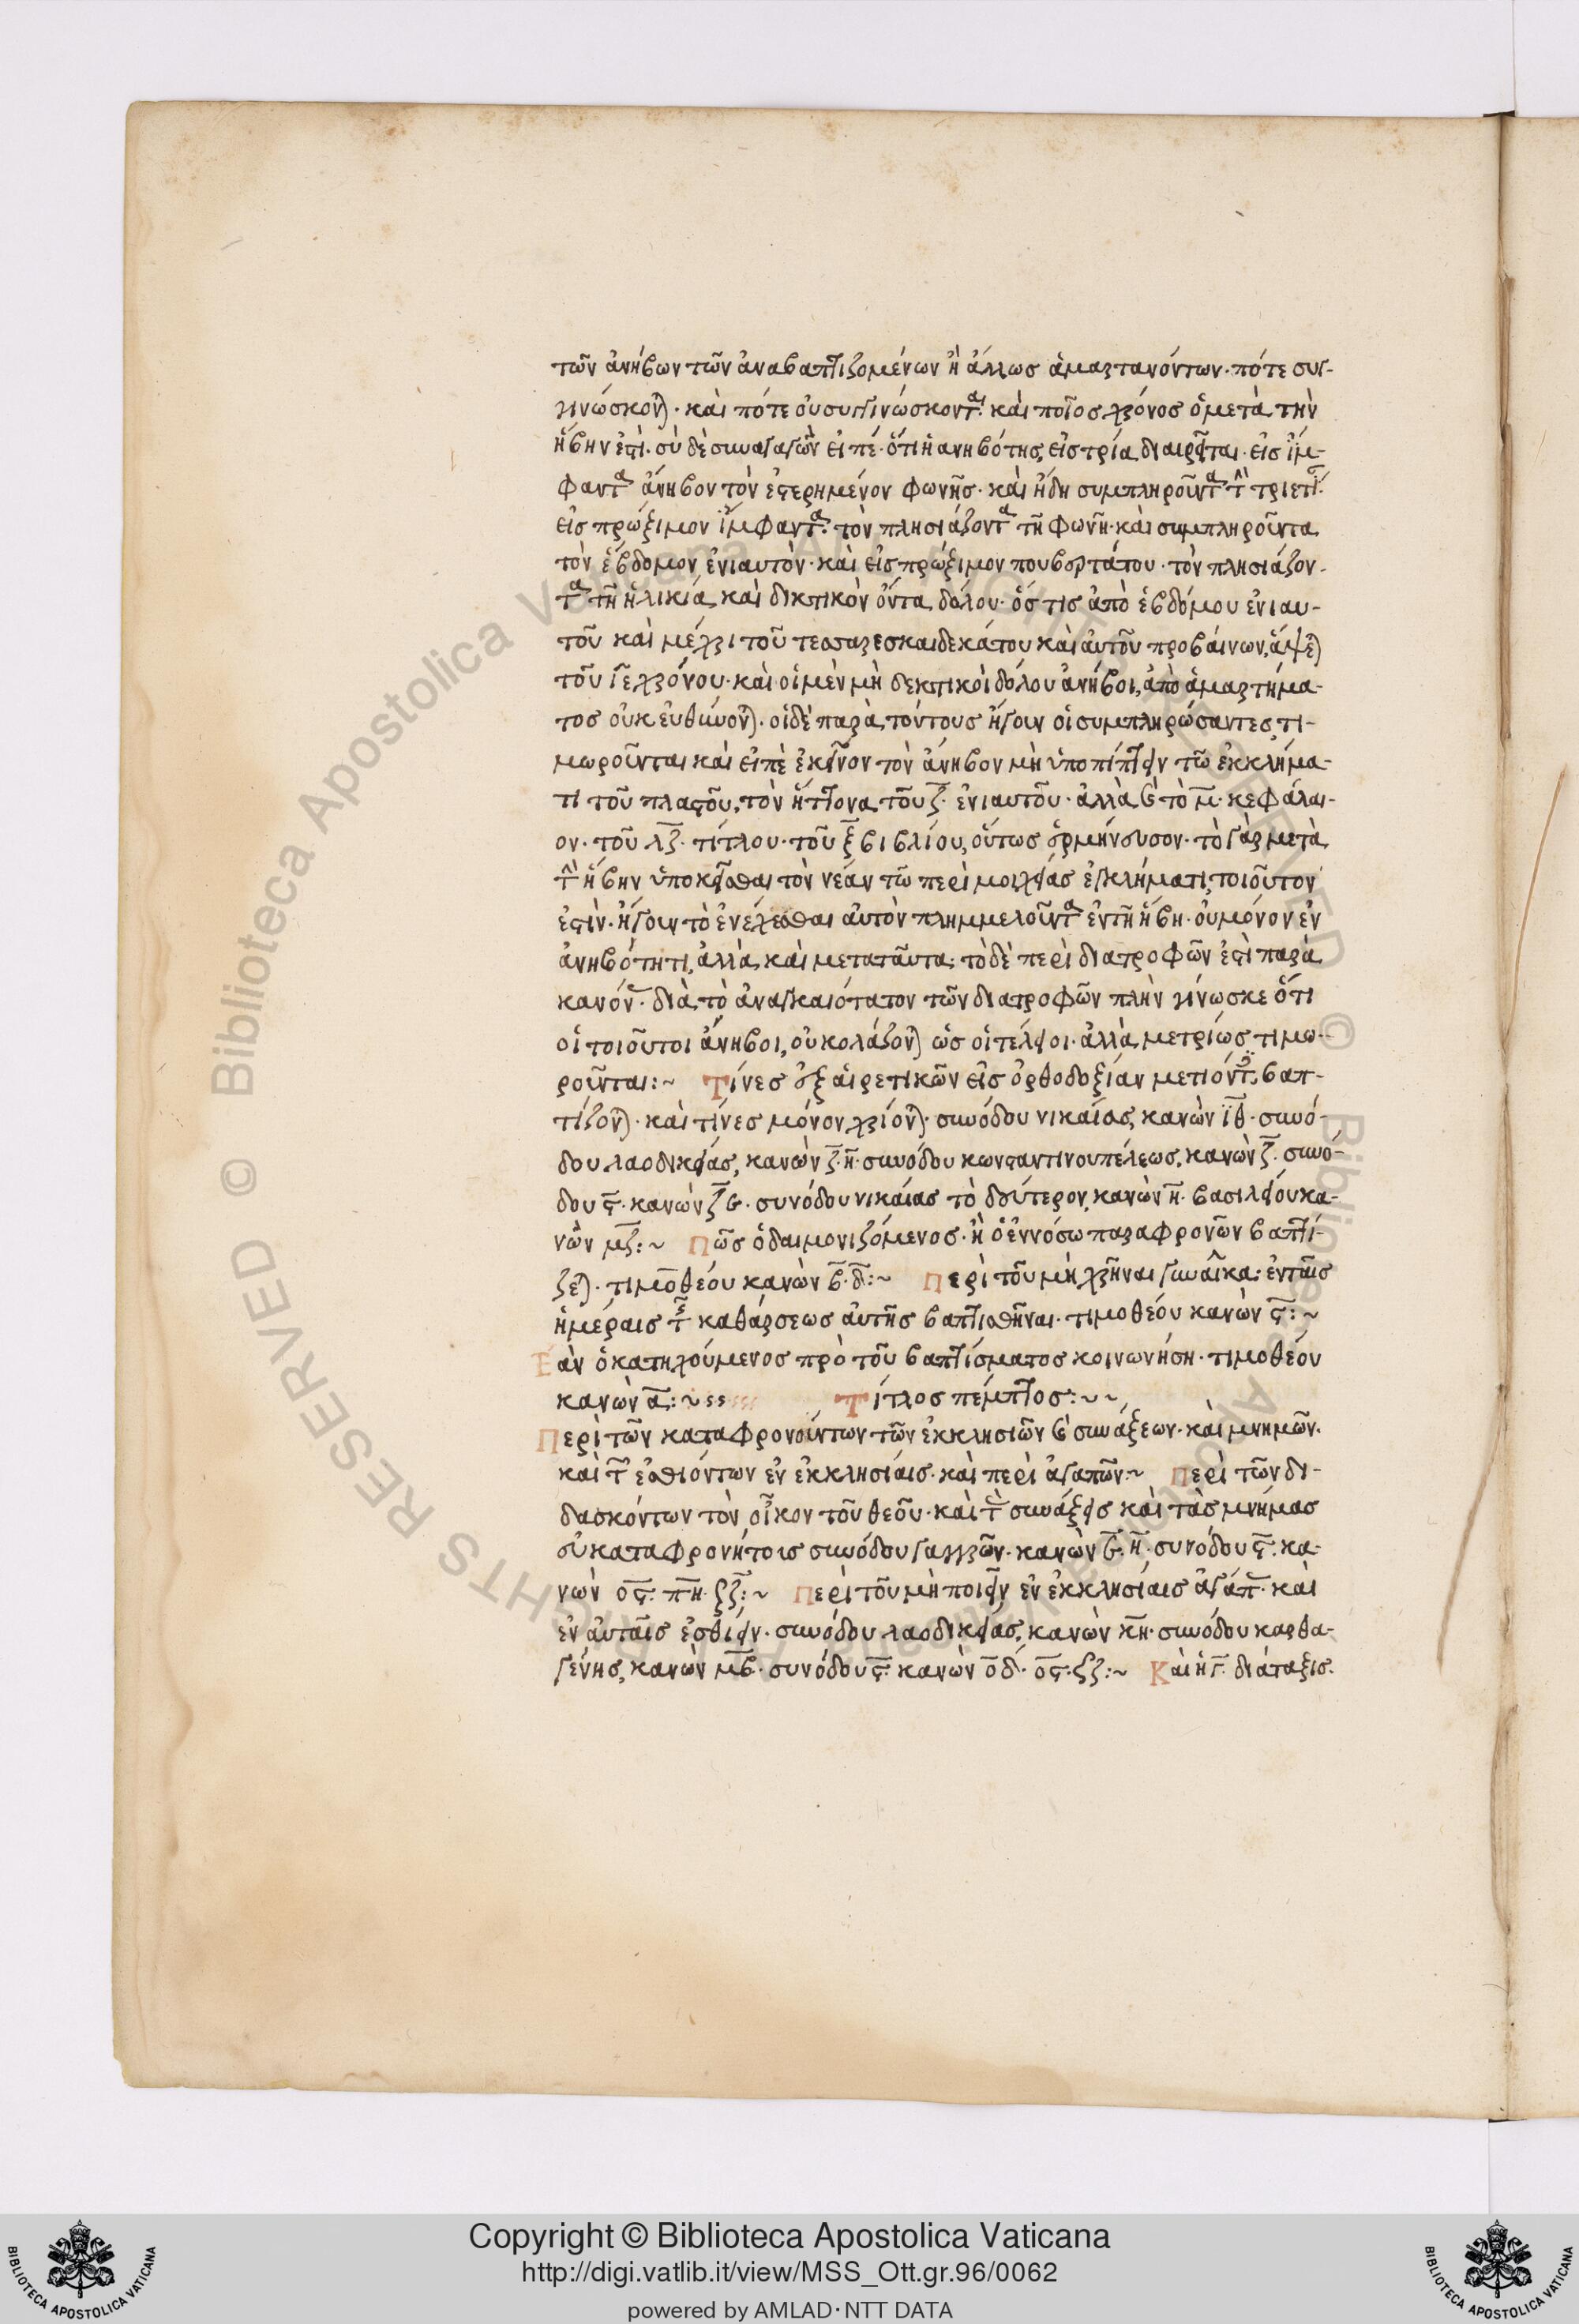 τῶν ἀνήβων τῶν ἀναβαπτιζομένων ἢ ἄλλως ἁμαρτανόντων· πότε συγ-
γινώσκον)· καὶ πότε οὐ συγγινώσκοντ(αι)· καὶ ποῖος χρόνος ὁ μετὰ τὴν
ἥβην ἐστὶ· σὺ δὲ συναγαγὼν εἰπέ· ὅτι ἡ ανηβότης, εἰς τρία διαιρεῖται· εἰς ἴμ-
φαντα ἄνηβον τὸν ἐστερημένον φωνῆς· καὶ ἤδη συμπληροῦντα τὴν τριετί
εἰς πρώξιμον ἴμφαντα· τὸν πλησιάζοντα τῆ φωνῆ· καὶ συμπληροῦντα
τὸν ἕβδομον ἐνιαυτὸν· καὶ εἰς πρώξιμον πουβερτάτου· τὸν πλησιάζον-
τα τῆ ἡλικία καὶ δεκτικὸν ὄντα δόλου· ὅς τις ἀπὸ ἑβδόμου ἐνιαυ-
τοῦ καὶ μέχρι τοῦ τεσσαρεσκαιδεκάτου καὶ αὐτοῦ προβαίνων,
τοῦ γε χρόνου· καὶ οἱ μὲν μὴ δεκτικοὶ δόλου ἀνήβοι, ἀπὸ ἁμαρτήμα-
τος οὐκ εὐθύνον)· οἱ δὲ παρὰ τούτους ἤγουν οἱ συμπληρώσαντες, τι-
μωροῦνται καὶ εἰπὲ ἐκεῖνον τὸν ἄνηβον μὴ ὑποπίπτειν τῶ ἐκκλήμα-
τι τοῦ πλαστοῦ, τὸν ἥττονα τοῦ ζ· ἐνιαυτοῦ· ἀλλὰ καὶ τὸ μ· κεφάλαι-
ον· τοῦ λζ· τίτλου· τοῦ ξ βιβλίου, οὕτως ἑρμήνευσον· τὸ γὰρ μετὰ
τὴν ἥβην ὑποκεῖσθαι τὸν νεάν τῶ περὶ μοιχείας ἐγκλήματι, τοιοῦτον
ἐστὶν· ἤγουν τὸ ἐνέχεσθαι αὐτὸν πλημμελοῦντα ἐν τῆ ἥβη· οὐ μόνον ἐν
ἀνηβότητι, ἀλλὰ καὶ μετα ταῦτα· τὸ δὲ περὶ διατροφῶν ἐστὶ παρὰ
κανόν· διὰ τὸ ἀναγκαιότατον τῶν διατροφῶν πλὴν γίνωσκε ὅτι
οἱ τοιοῦτοι ἄνηβοι, οὐ κολάζον) ὡς οἱ τέλειοι· ἀλλὰ μετρίως τιμω-
ροῦνται:~ Τίνες ἐξ αἱρετικῶν εἰς ὀρθοδοξίαν μετιόντες, βαπ-
τίζον)· καὶ τίνες μόνον χρίον)· συνόδου νικαίας, κανὼν ιθ· συνό-
δου λαοδικείας, κανὼν ζ· η· συνόδου κωνσταντινουπόλεως, κανὼν ζ· συνό-
δου ϛ· κανὼν· συνόδου νικαίας τὸ δεύτερον, κανὼν η· βασιλείου κα-
νὼν μζ:~ Πῶς ὁ δαιμονιζόμενος· ἢ ὁ ἐν νόσω παραφρονῶν βαπτί-
ζε)· τιμοθέου κανὼν β· δ:~ Περὶ τοῦ μὴ χρῆναι γυναῖκα· ἐν ταῖς
ἡμέραις τῆς καθάρσεως αὐτῆς βαπτισθῆναι· τιμοθέου κανὼν ϛ:~
Ἐὰν ὁ κατηχούμενος πρὸ τοῦ βαπτίσματος κοινωνήση· τιμοθέου
κανὼν α:~ Τίτλος πέμπτος:~~
Περὶ τῶν καταφρονούντων τῶν ἐκκλησιῶν καὶ συνάξεων· καὶ μνημῶν·
καὶ τῶν ἐσθιόντων ἐν ἐκκλησίαις· καὶ περὶ ἀγαπῶν:~ Περὶ τῶν δι-
δασκόντων τὸν οἶκον τοῦ θεοῦ· καὶ τὰς συνάξεις καὶ τὰς μνήμας
εὐκαταφρονήτοις συνόδου γαγγρῶν· κανὼν· η· συνόδου ϛ· κα-
νὼν οϛ· πη·:~ Περὶ τοῦ μὴ ποιεῖν ἐν ἐκκλησίαις ἀγάπ· καὶ
ἐν αὐταῖς ἐσθίειν· συνόδου λαοδικείας, κανὼν κη· συνόδου καρθα-
γένης, κανὼν μβ· συνόδου ϛ· κανὼν οδ· οϛ·:~ Καὶ ἡ γ· διάταξις·
Copyright © Biblioteca Apostolica Vaticana
http://digi.vatlib.it/view/MSS_Ott.gr.96/0062
powered by AMLAD·NTT DATA